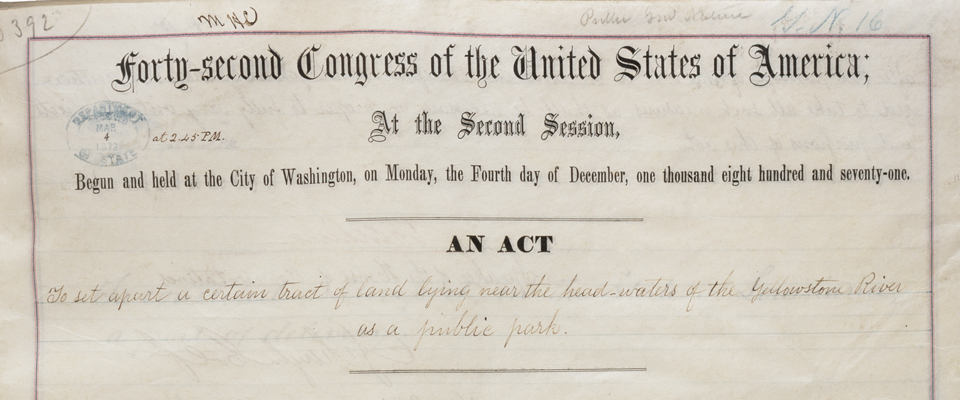 392
Forty-second Congress of the United States of America;
At the Second Session,
DEPARTMENT
MAR
4
OF STATE
at 2.45 P.M.
Begun and held at the City of Washington, on Monday, the Fourth day of December, one thousand eight hundred and seventy-one.
AN ACT
To set apart a certain tract of land lying near the head-waters of the Yellowstone River
as a public park.